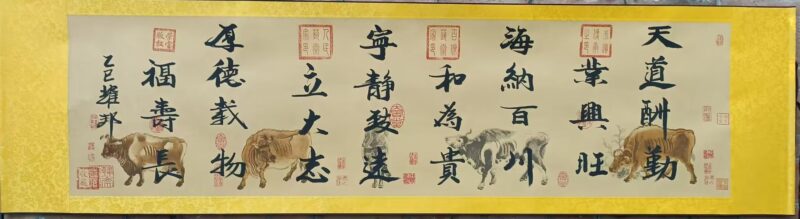 天道酬勤
業興旺
海納百川
和為貴
宁靜致遠
立大志
厚德載物
福壽長
乙巳雄邦